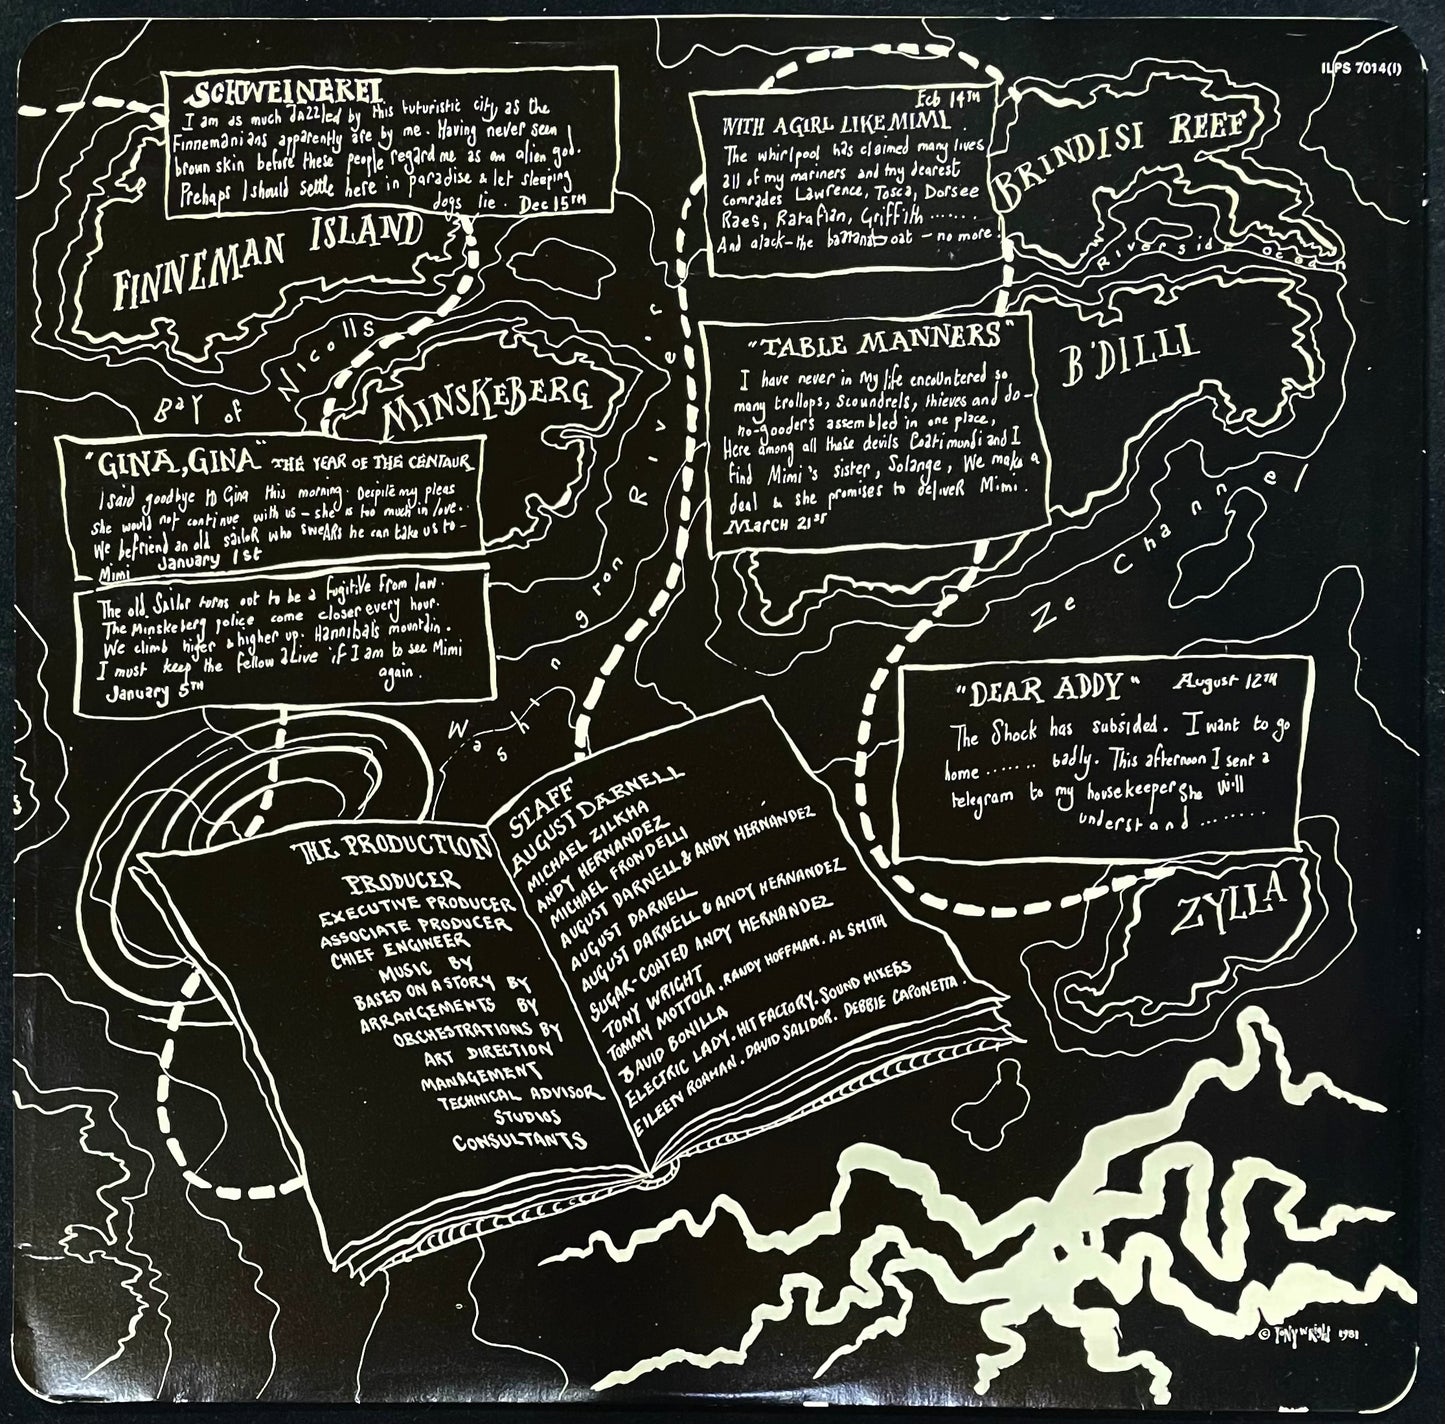 ILPS 7014(I)
SCHWEINEREI
I am as much dazzled by this futuristic city as the
Finnemanians apparently are by me. Having never seen
brown skin before these people regard me as an alien god.
Prehaps I should settle here in paradise & let sleeping
dogs lie. Dec 15TH
FINNEMAN ISLAND
Bay of Nicolls
MINSKEBERG
"GINA, GINA" THE YEAR OF THE CENTAUR
I said goodbye to Gina this morning. Despite my pleas
she would not continue with us - she is too much in love.
We befriend an old sailor who swears he can take us to -
Mimi January 1st
The old Sailor turns out to be a fugitive from law.
The Minskeberg police come closer every hour.
We climb higer & higher up. Hannibals mountain.
I must keep the fellow alive if I am to see Mimi
again.
January 5TH
Washingron River
Feb 14TH
WITH A GIRL LIKE MIMI
The whirlpool has claimed many lives
all of my mariners and my dearest
comrades Lawrence, Tosca, Dorsee
Raes, Ratafian, Griffith .......
And alack - the bananaboat - no more!
BRINDISI REEF
Riverside Ocean
"TABLE MANNERS"
I have never in my life encountered so
many trollops, scoundrels, thieves and do-
no-gooders assembled in one place,
Here among all these devils Coati mundi and I
find Mimi's sister, Solange, We make a
deal & she promises to deliver Mimi.
March 21st
B'DILLI
Ze Channel
"DEAR ADDY" August 12TH
The Shock has subsided. I want to go
home ....... badly. This afternoon I sent a
telegram to my housekeeper She will
understand ........
ZYLLA
THE PRODUCTION
PRODUCER
EXECUTIVE PRODUCER
ASSOCIATE PRODUCER
CHIEF ENGINEER
MUSIC BY
BASED ON A STORY BY
ARRANGEMENTS BY
ORCHESTRATIONS BY
ART DIRECTION
MANAGEMENT
TECHNICAL ADVISOR
STUDIOS
CONSULTANTS
STAFF
AUGUST DARNELL
MICHAEL ZILKHA
ANDY HERNANDEZ
MICHAEL FRONDELLI
AUGUST DARNELL & ANDY HERNANDEZ
AUGUST DARNELL
AUGUST DARNELL & ANDY HERNANDEZ
SUGAR-COATED ANDY HERNANDEZ
TONY WRIGHT
TOMMY MOTTOLA. RANDY HOFFMAN. AL SMITH
DAVID BONILLA
ELECTRIC LADY. HIT FACTORY. SOUND MIXERS
EILEEN ROAHAN. DAVID SALIDOR. DEBBIE CAPONETTA.
© TONY WRIGHT 1981